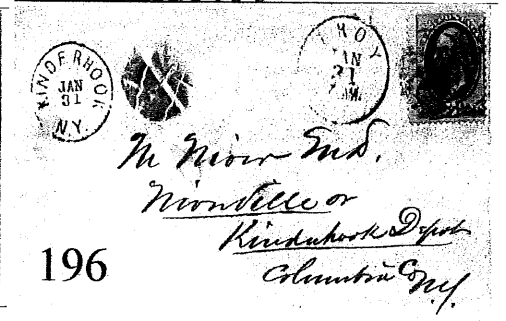 KINDERHOOK
JAN
31
N.Y.
TROY
JAN
31
M Niver M.D.
Niverville or
Kinderhook Depot
Columbia Co
N.Y.
196